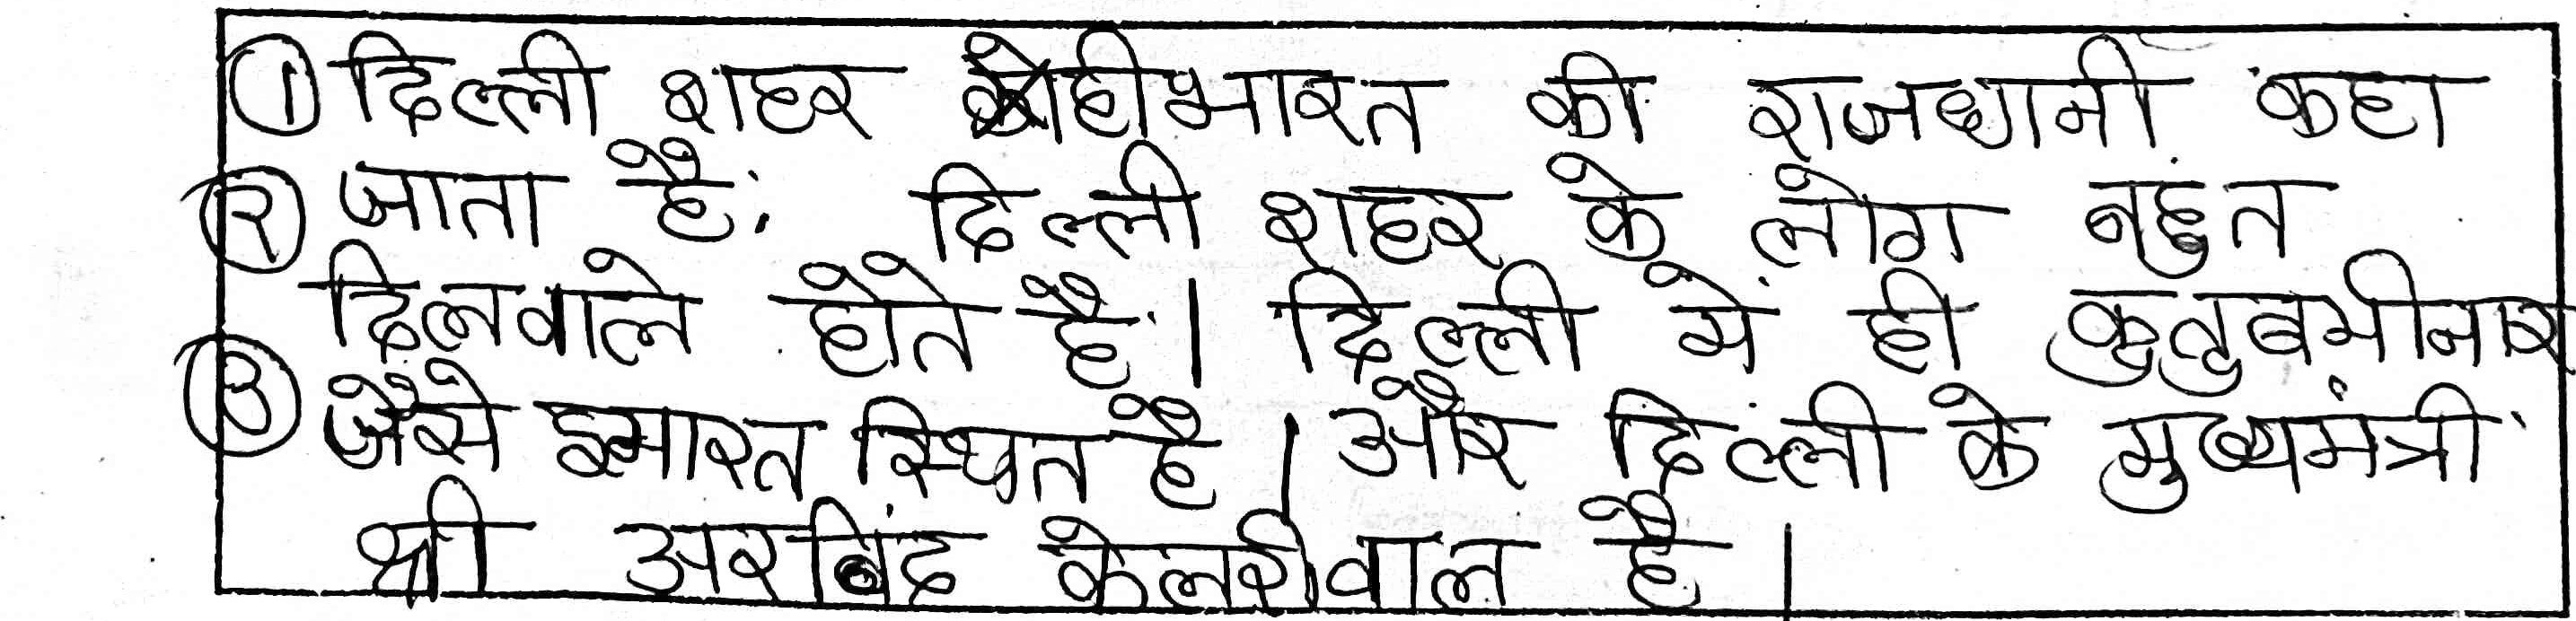 ① दिल्ली शहर को ही भारत की राजधानी कहा
② जाता है. दिल्ली शहर के लोग बहुत
दिलवाले होते है। दिल्ली में ही कुतुबमीनार
③ जैसे इमारत स्थित है। और दिल्ली के मुख्यमंत्री
श्री अरबिंद केलरीवाल है।